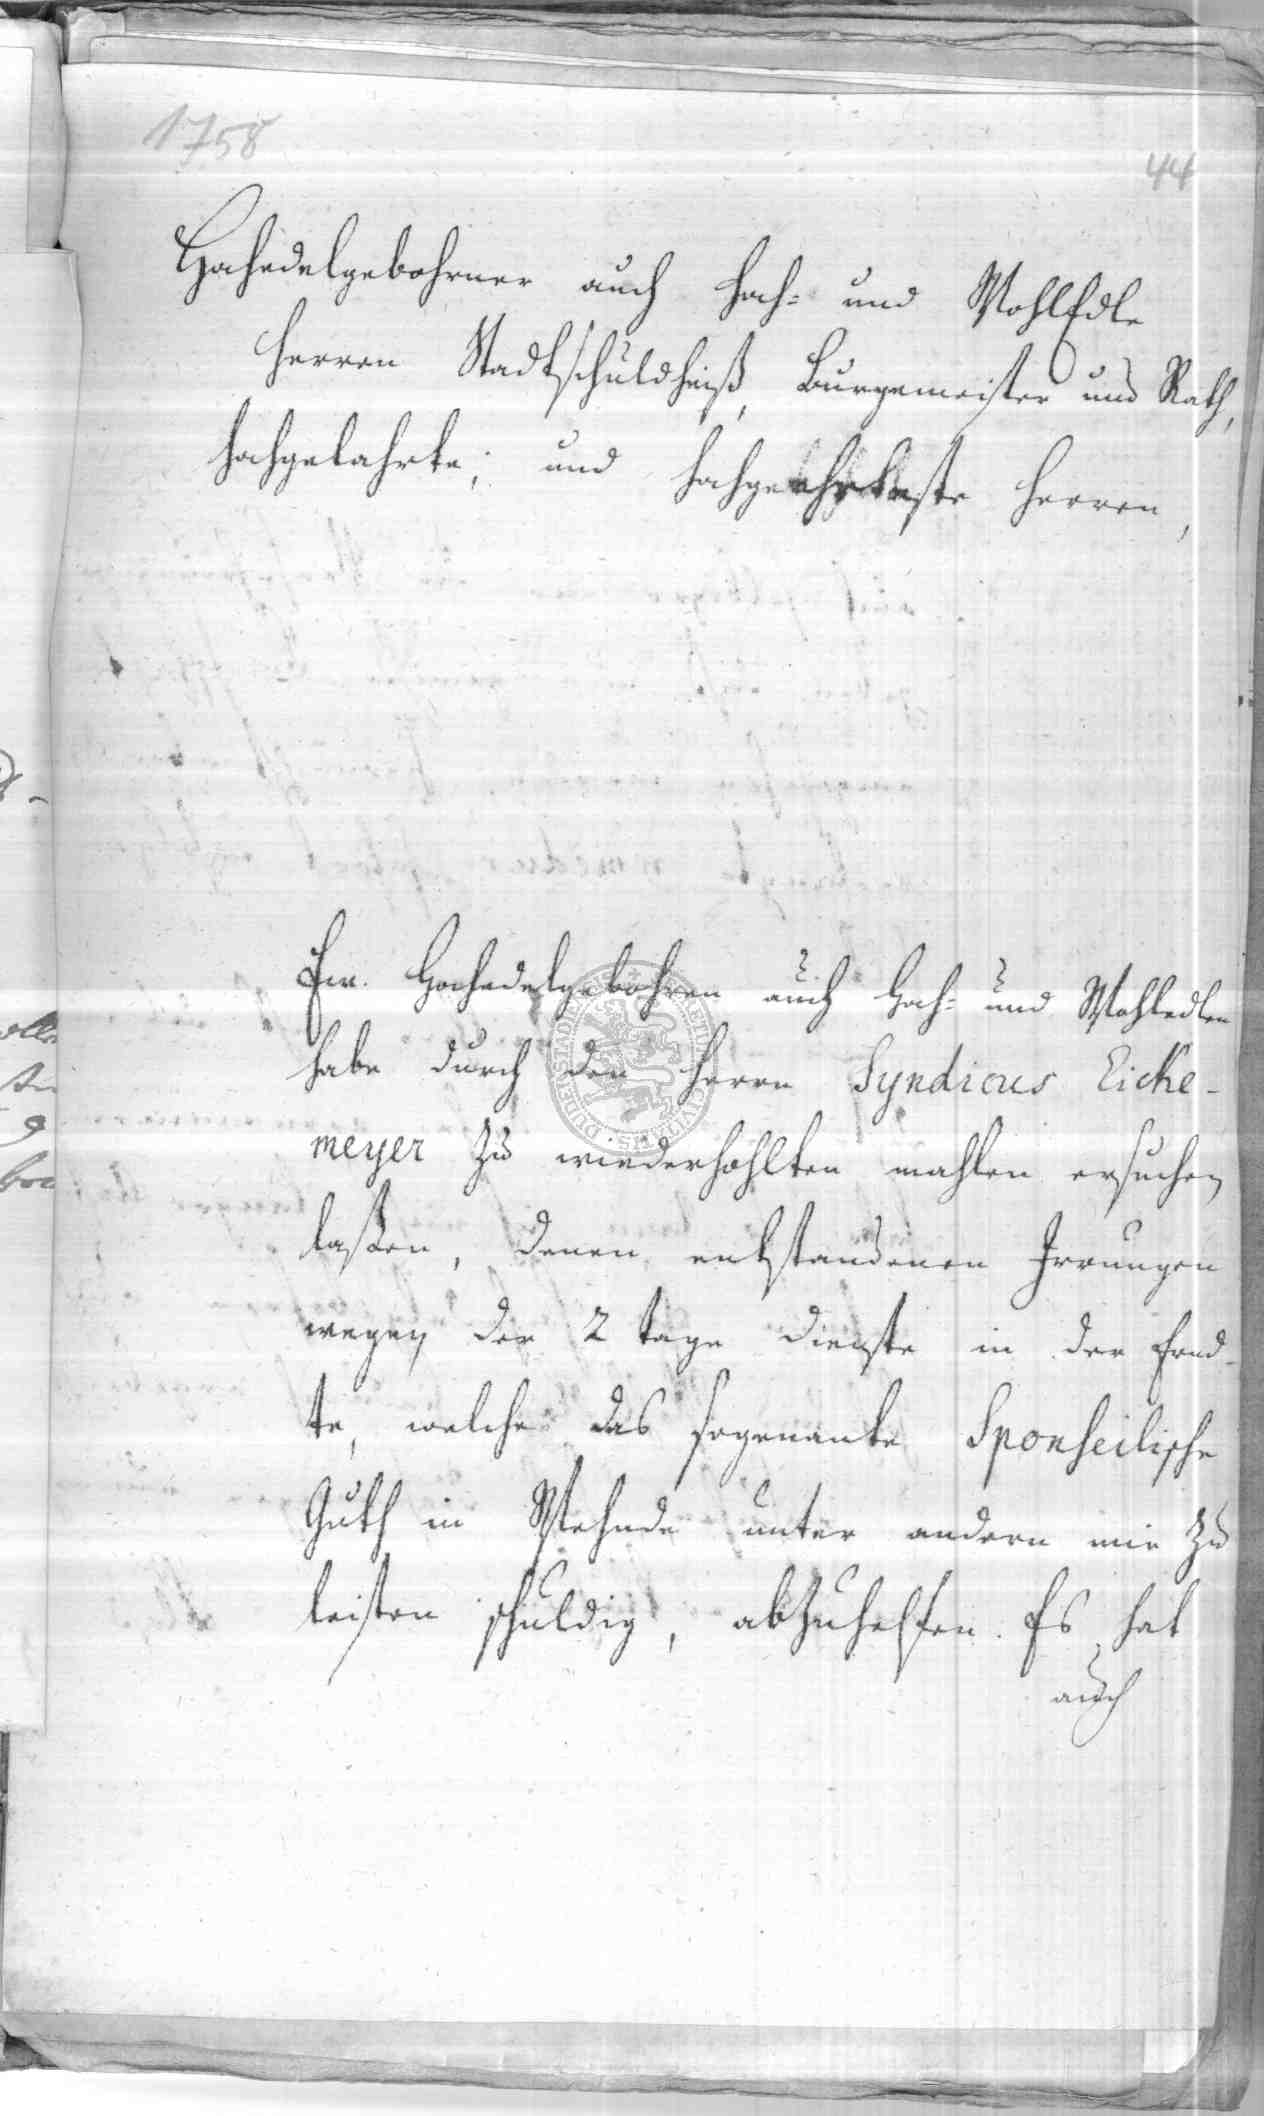 1758
44
Hochedelgebohrner auch Hoch= und WohlEdle
Herren Stadtschuldheiß, Burgemeister und Rath,
Hochgelahrte, und Hochgeehrteste Herren,
Ew. Hochedelgebohren auch Hoch= und Wohledlen
habe durch den Herrn Syndicus Eicke-
meyer zu wiederhohlten mahlen ersuchen
laßen, denen entstandenen Irrungen
wegen der 2 tage Dienste in der Ernd-
te, welche das sogenante Sponseilische
Guth in Wehnde unter andern mir zu
leisten schuldig, abzuhelfen. Es hat
auch